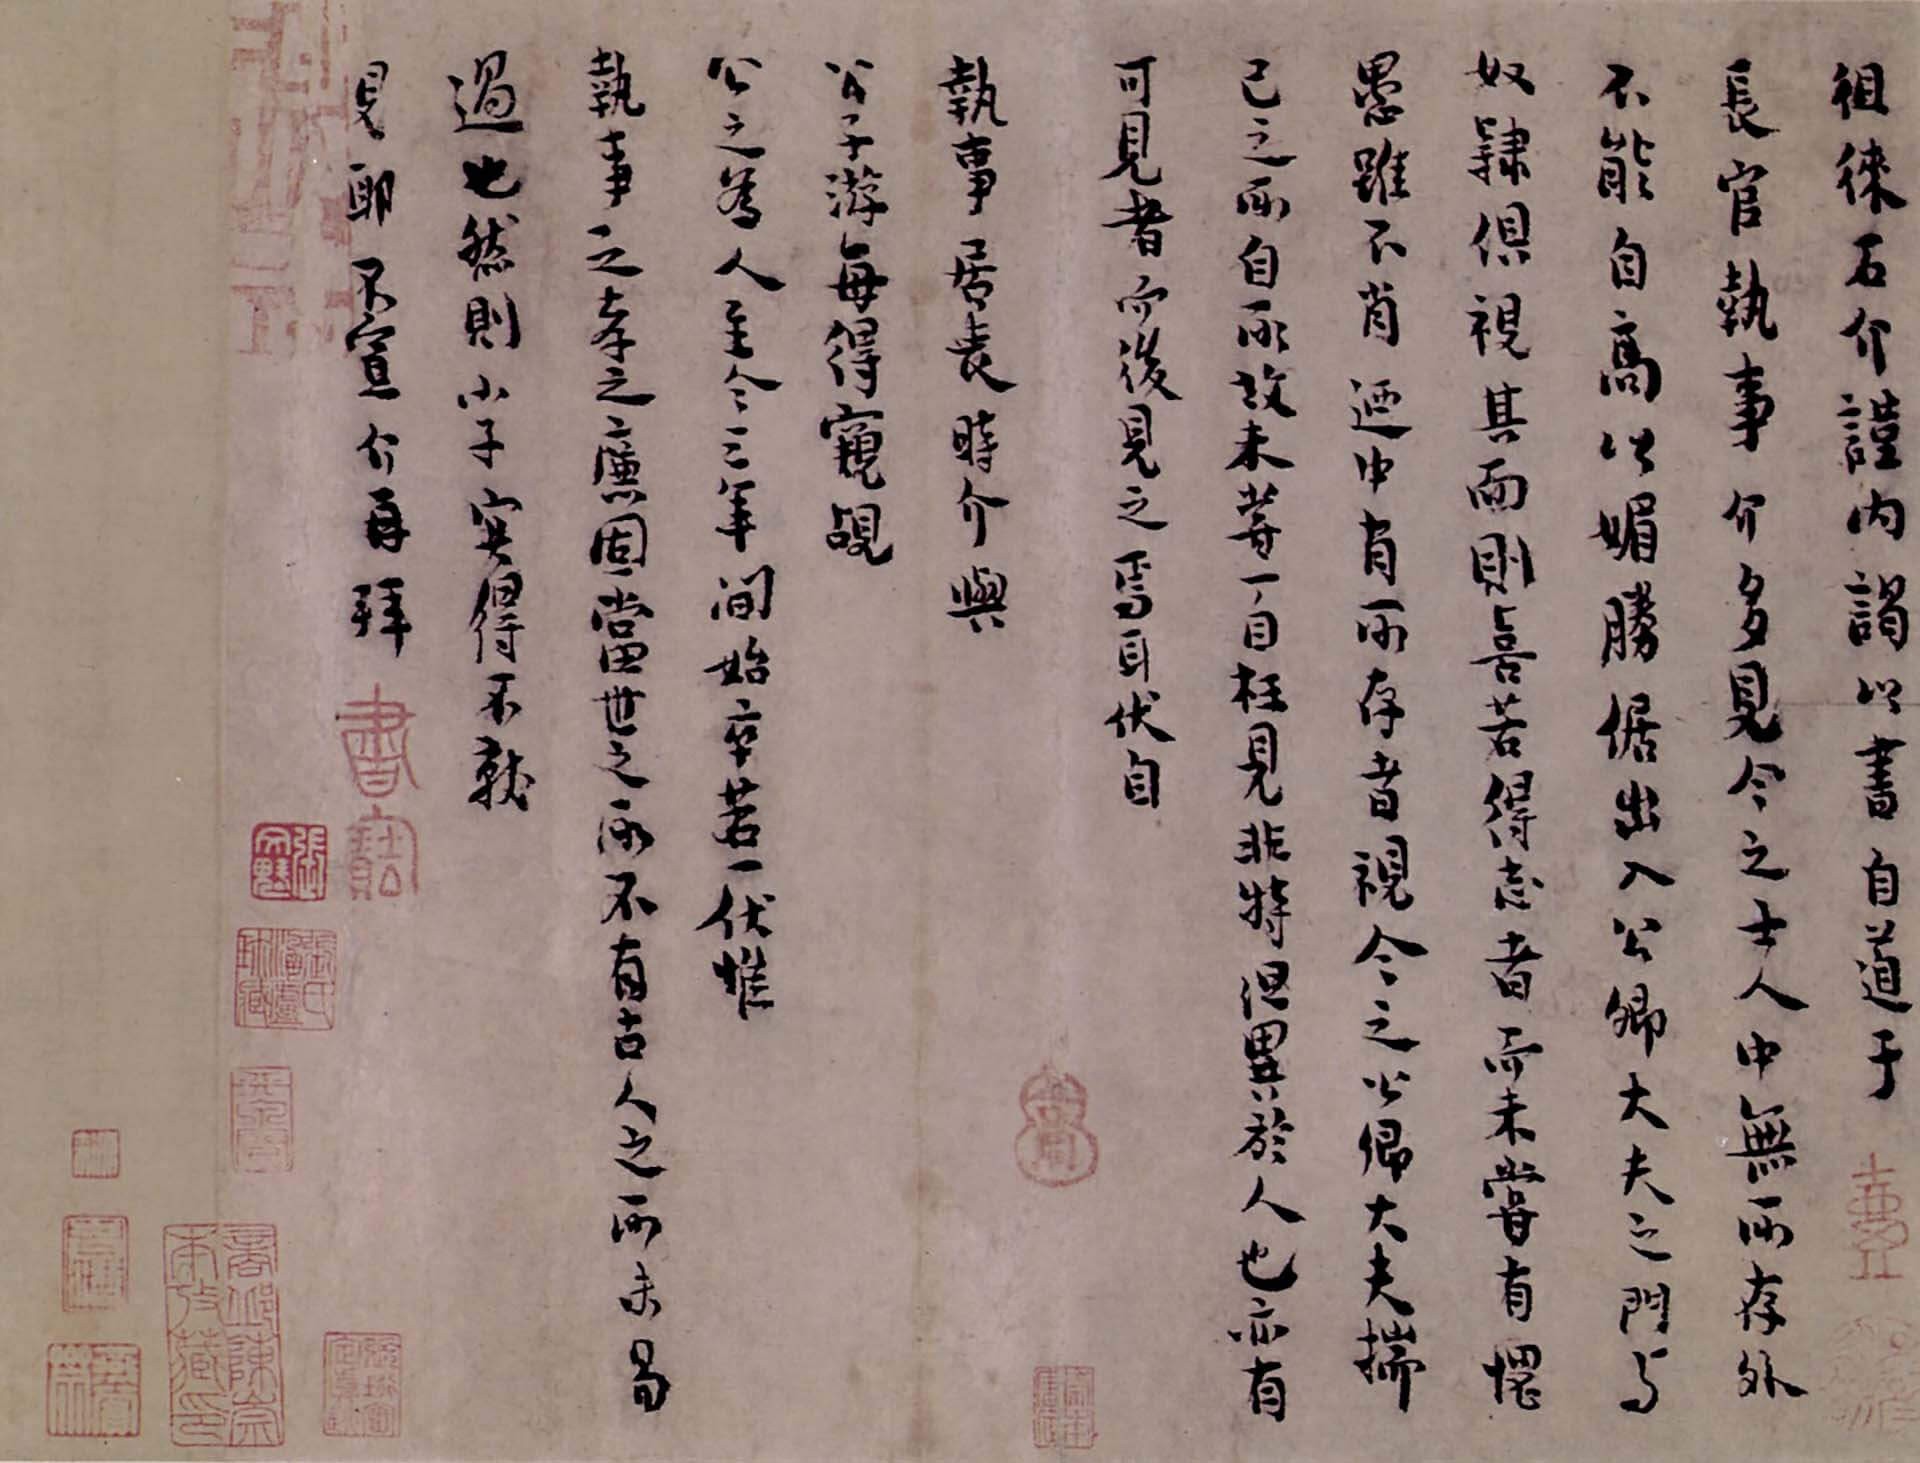 徂徠石介謹內謁以書自道于
長官執事介多見今之士人中無所存外
不能自高以媚勝倨出入公卿大夫之門与
奴隸俱視其面則喜若得志者而未嘗有愧
愚雖不肖迺中有所存者視今之公卿大夫揣
己之所自所故未甞一自枉見非特但異於人也亦有
可見者而後見之焉耳伏自
執事居喪時介與
公子游每得窺覘
公之為人至今三年間始卒若一伏惟
執事之孝之廉固當世之所不有古人之所未易
過也然則小子安得不就
見耶不宣介再拜